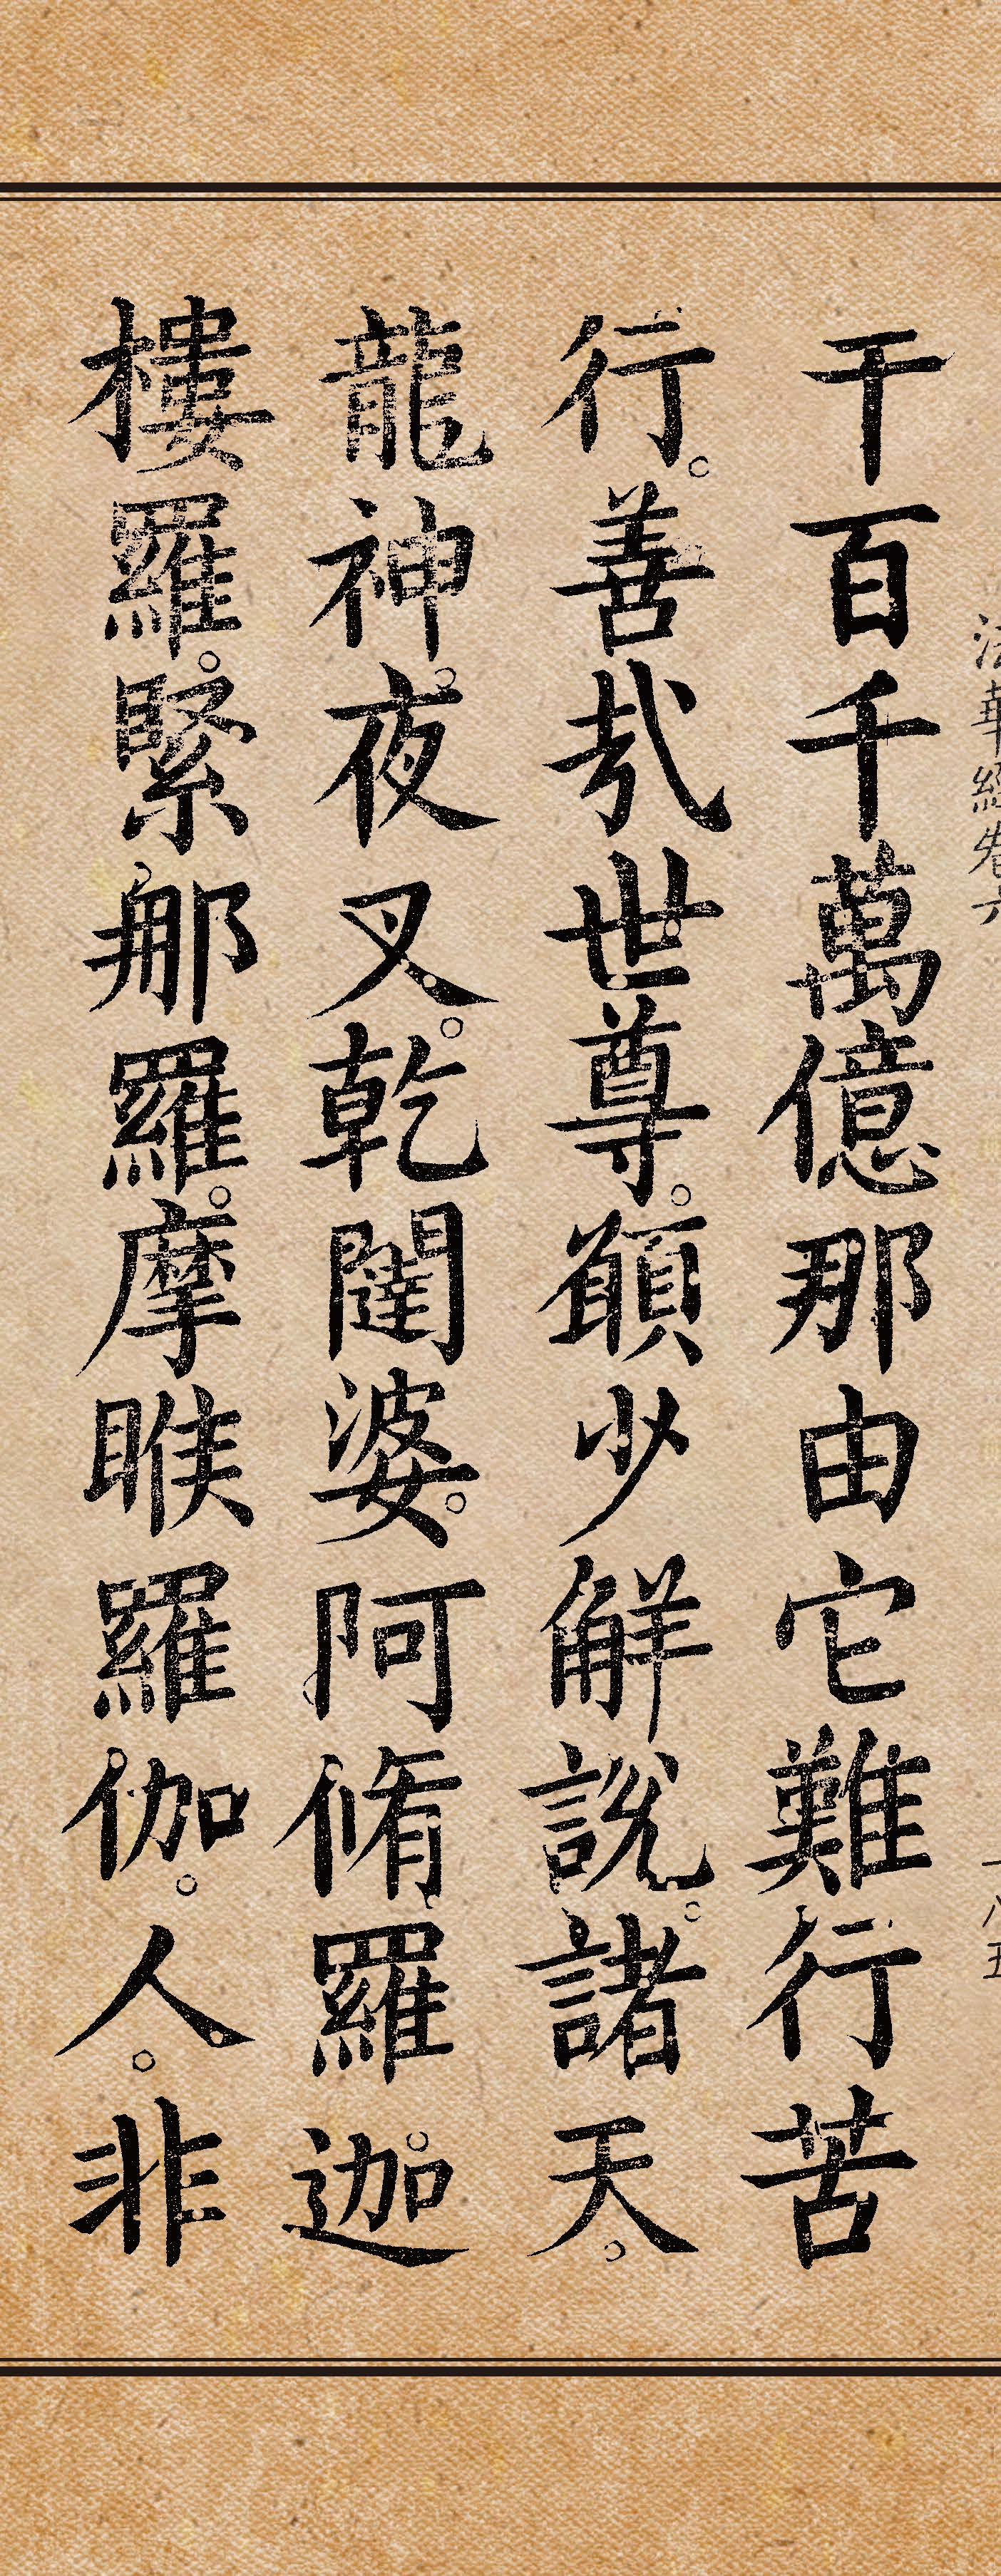 法華經卷六 一八五
干百千萬億那由它難行苦
行。善哉世尊。願少解說。諸天。
龍神。夜叉。乾闥婆。阿脩羅。迦
樓羅。緊那羅。摩睺羅伽。人。非